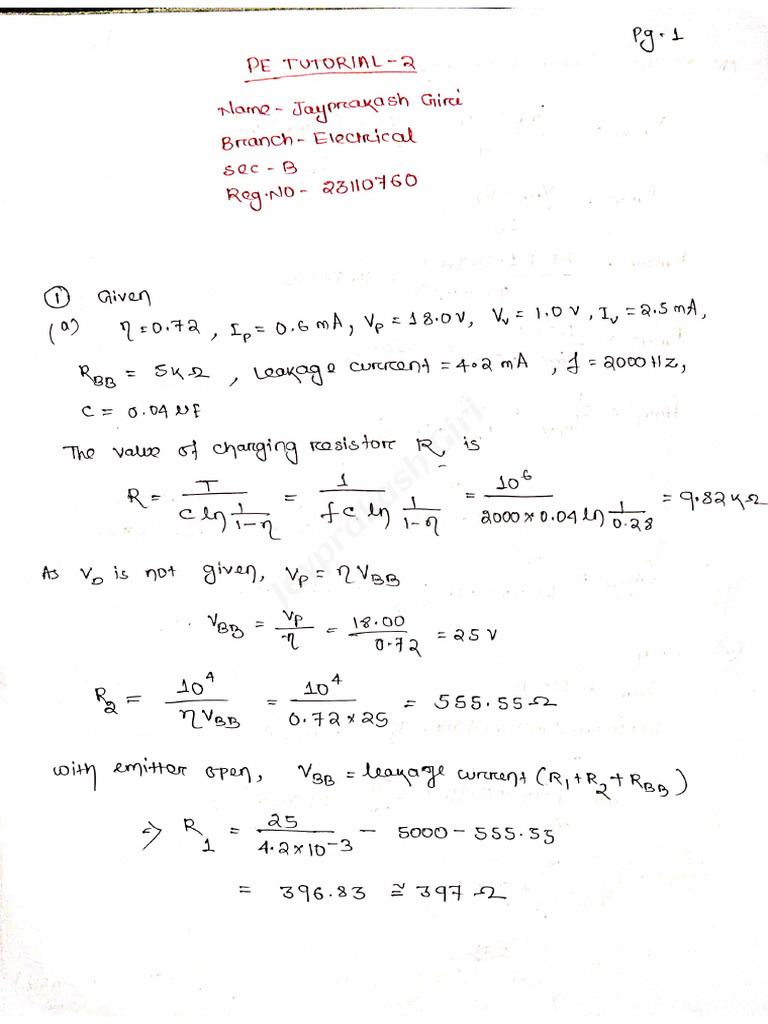 Pg. 1
PE TUTORIAL - 2
Name - Jayprakash Giri
Branch - Electrical
Sec - B
Reg. NO - 23110760
① Given
(a) η = 0.72 , I_P = 0.6 mA, V_P = 18.0 V, V_V = 1.0 V , I_V = 2.5 mA,
R_BB = 5kΩ , Leakage current = 4.2 mA , f = 2000 Hz,
C = 0.04 μF
The value of charging resistor R, is
R = T / (C ln 1/(1-η)) = 1 / (f C ln 1/(1-η)) = 10^6 / (2000 × 0.04 ln 1/0.28) = 9.82 kΩ
As V_D is not given, V_P = η V_BB
V_BB = V_P / η = 18.00 / 0.72 = 25 V
R_2 = 10^4 / (η V_BB) = 10^4 / (0.72 × 25) = 555.55 Ω
with emitter open, V_BB = leakage current (R_1 + R_2 + R_BB)
⇒ R_1 = 25 / (4.2 × 10^-3) - 5000 - 555.55
= 396.83 ≅ 397 Ω
Jayprakash Giri